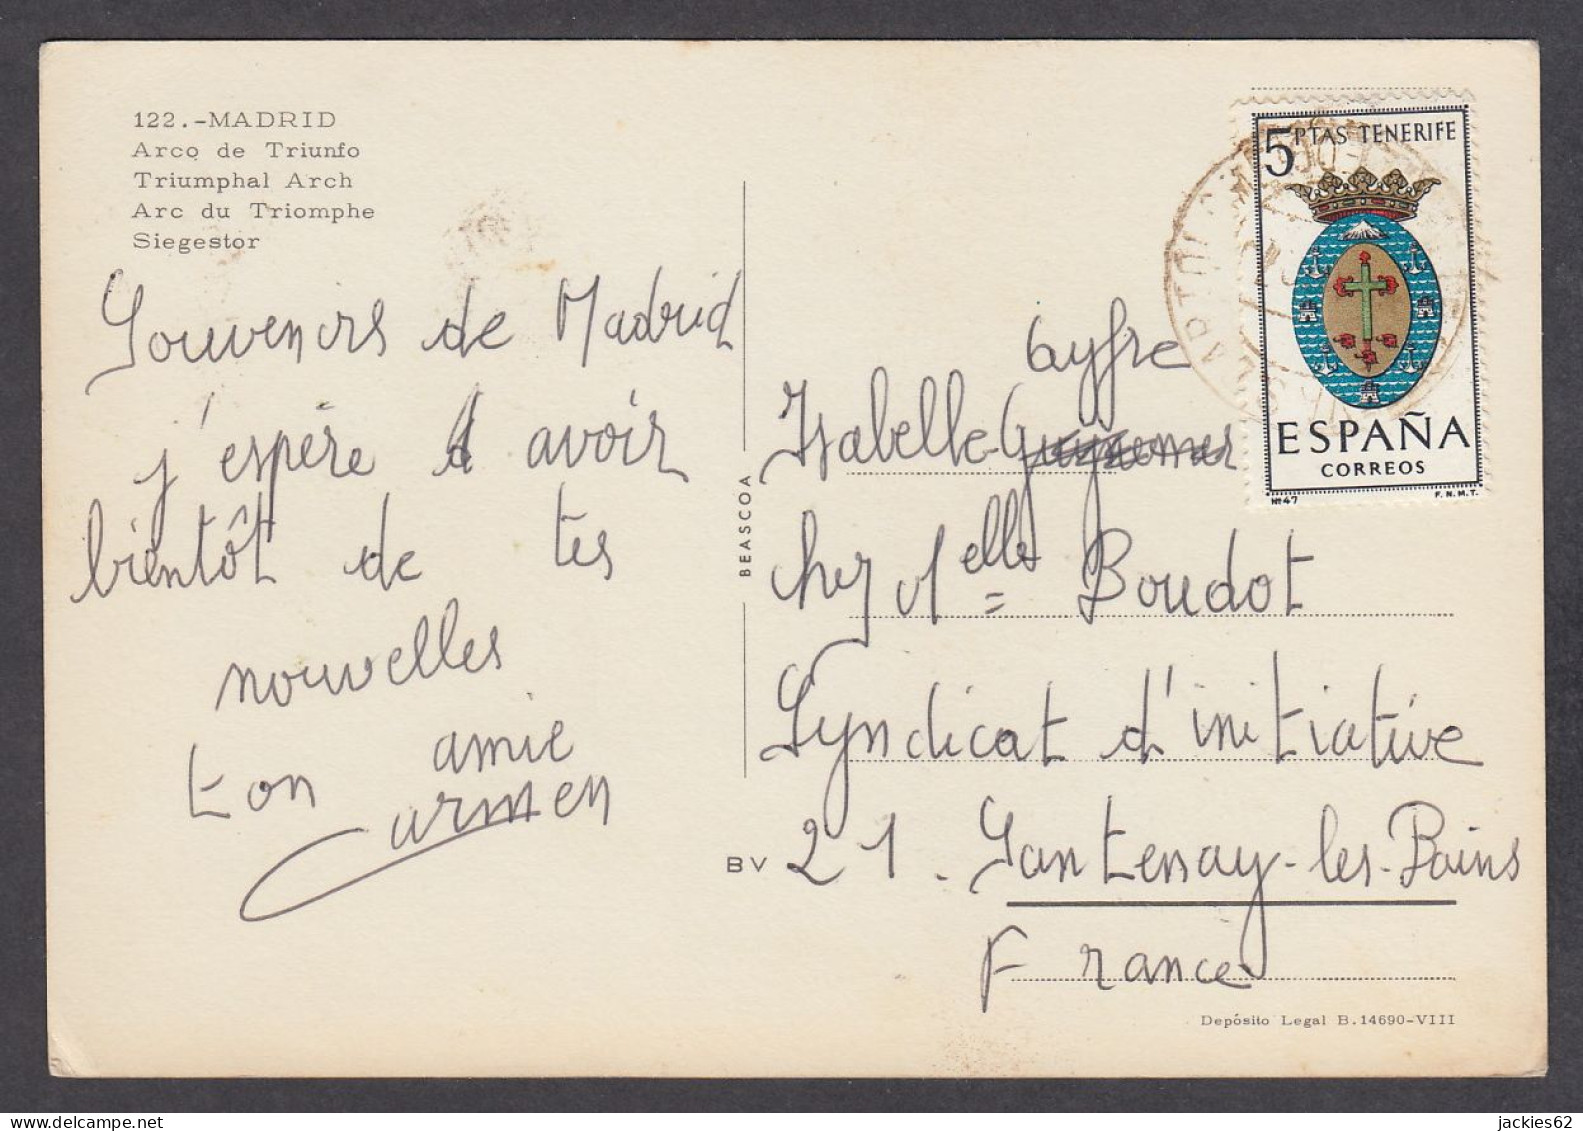 122.-MADRID
Arco de Triunfo
Triumphal Arch
Arc du Triomphe
Siegestor
Souvenirs de Madrid
j'espère avoir
bientôt de tes
nouvelles
ton amie
Carmen
BEASCOA
BV
5 PTAS TENERIFE
ESPAÑA
CORREOS
Nº 47
F.N.M.T.
Gyfre
Isabelle
chez Melle Boudot
Syndicat d'initiative
21. Santenay-les-Bains
France
Depósito Legal B.14690-VIII
jackies62